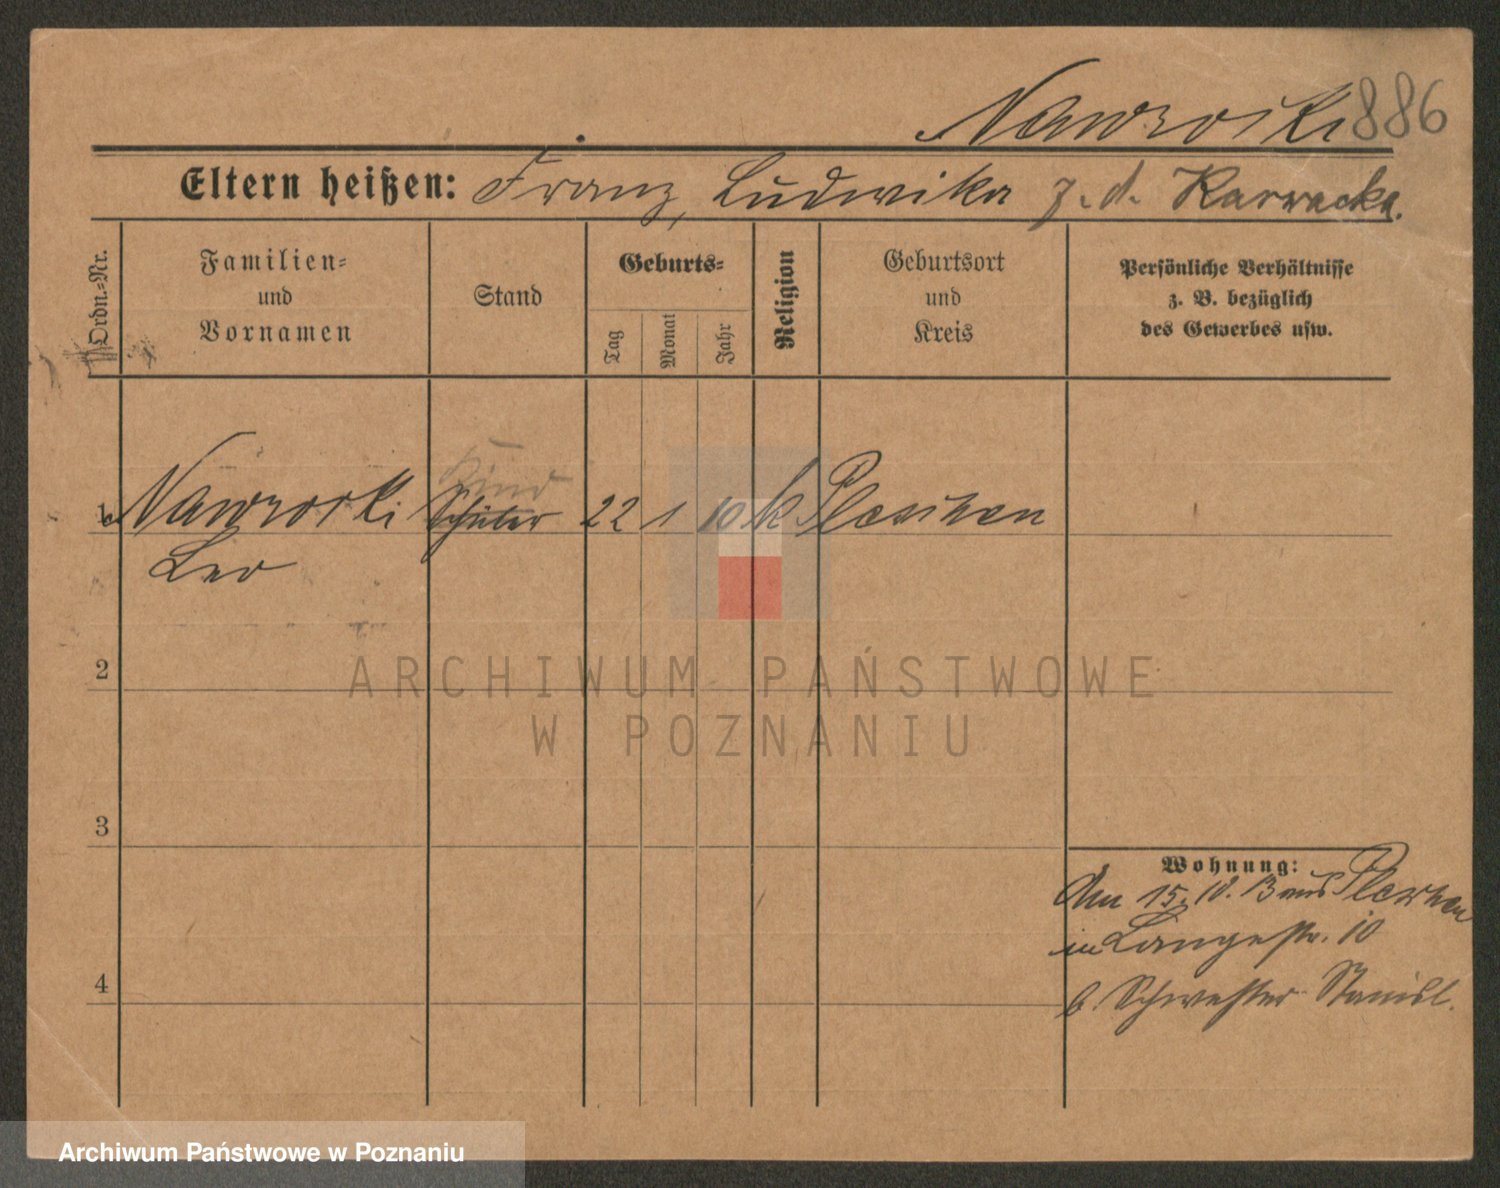 Nawrocki 886
Eltern heißen: Franz, Ludwika z. d. Karwacka.
Ordn.=Nr.
Familien=
und
Vornamen
Stand
Geburts=
Tag
Monat
Jahr
Religion
Geburtsort
und
Kreis
Persönliche Verhältnisse
z. B. bezüglich
des Gewerbes usw.
Kind
1 Nawrocki Schüler 22 1 10 k Pleschen
Leo
2
3
4
Wohnung:
Am 15. 10. 13 aus Pleschen
in Langestr. 10
b. Schwester Stanisl.
ARCHIWUM PAŃSTWOWE
W POZNANIU
Archiwum Państwowe w Poznaniu